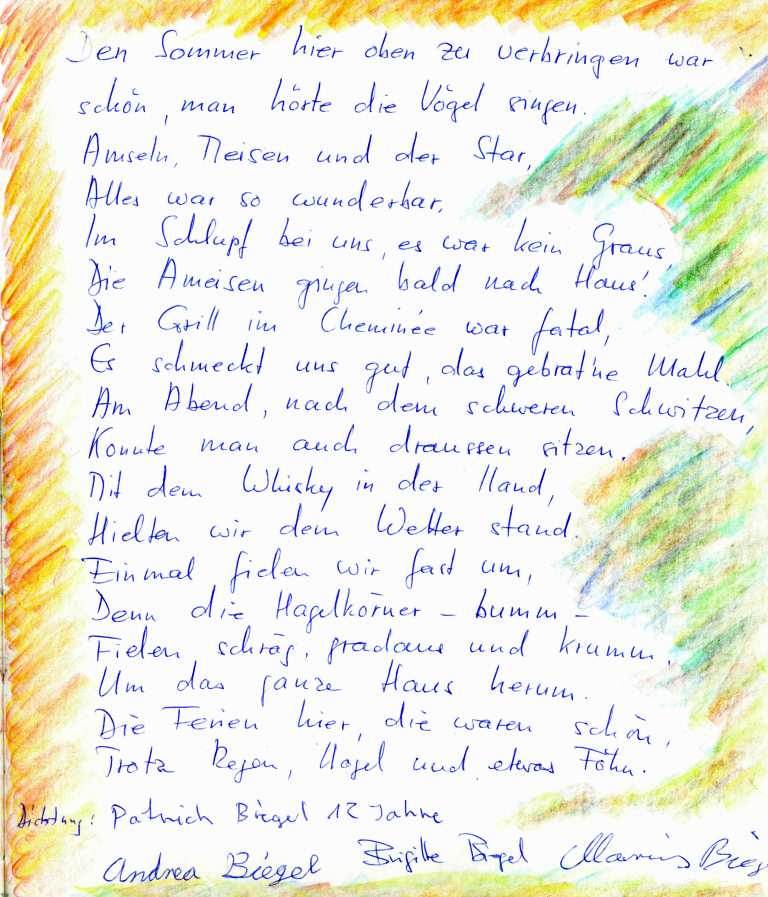 Den Sommer hier oben zu verbringen war
schön, man hörte die Vögel singen.
Amseln, Meisen und der Star,
Alles war so wunderbar.
Im Schlupf bei uns, es war kein Graus,
Die Ameisen gingen bald nach Haus!
Der Grill im Cheminée war fatal,
Es schmeckt uns gut, das gebrat'ne Mahl.
Am Abend, nach dem schweren Schwitzen,
Konnte man auch draussen sitzen.
Mit dem Whisky in der Hand,
Hielten wir dem Wetter stand.
Einmal fielen wir fast um,
Denn die Hagelkörner – bumm –
Fielen schräg, gradaus und krumm.
Um das ganze Haus herum.
Die Ferien hier, die waren schön,
Trotz Regen, Hagel und etwas Föhn.
Dichtung: Patrick Biegel 12 Jahre
Andrea Biegel Brigitte Biegel